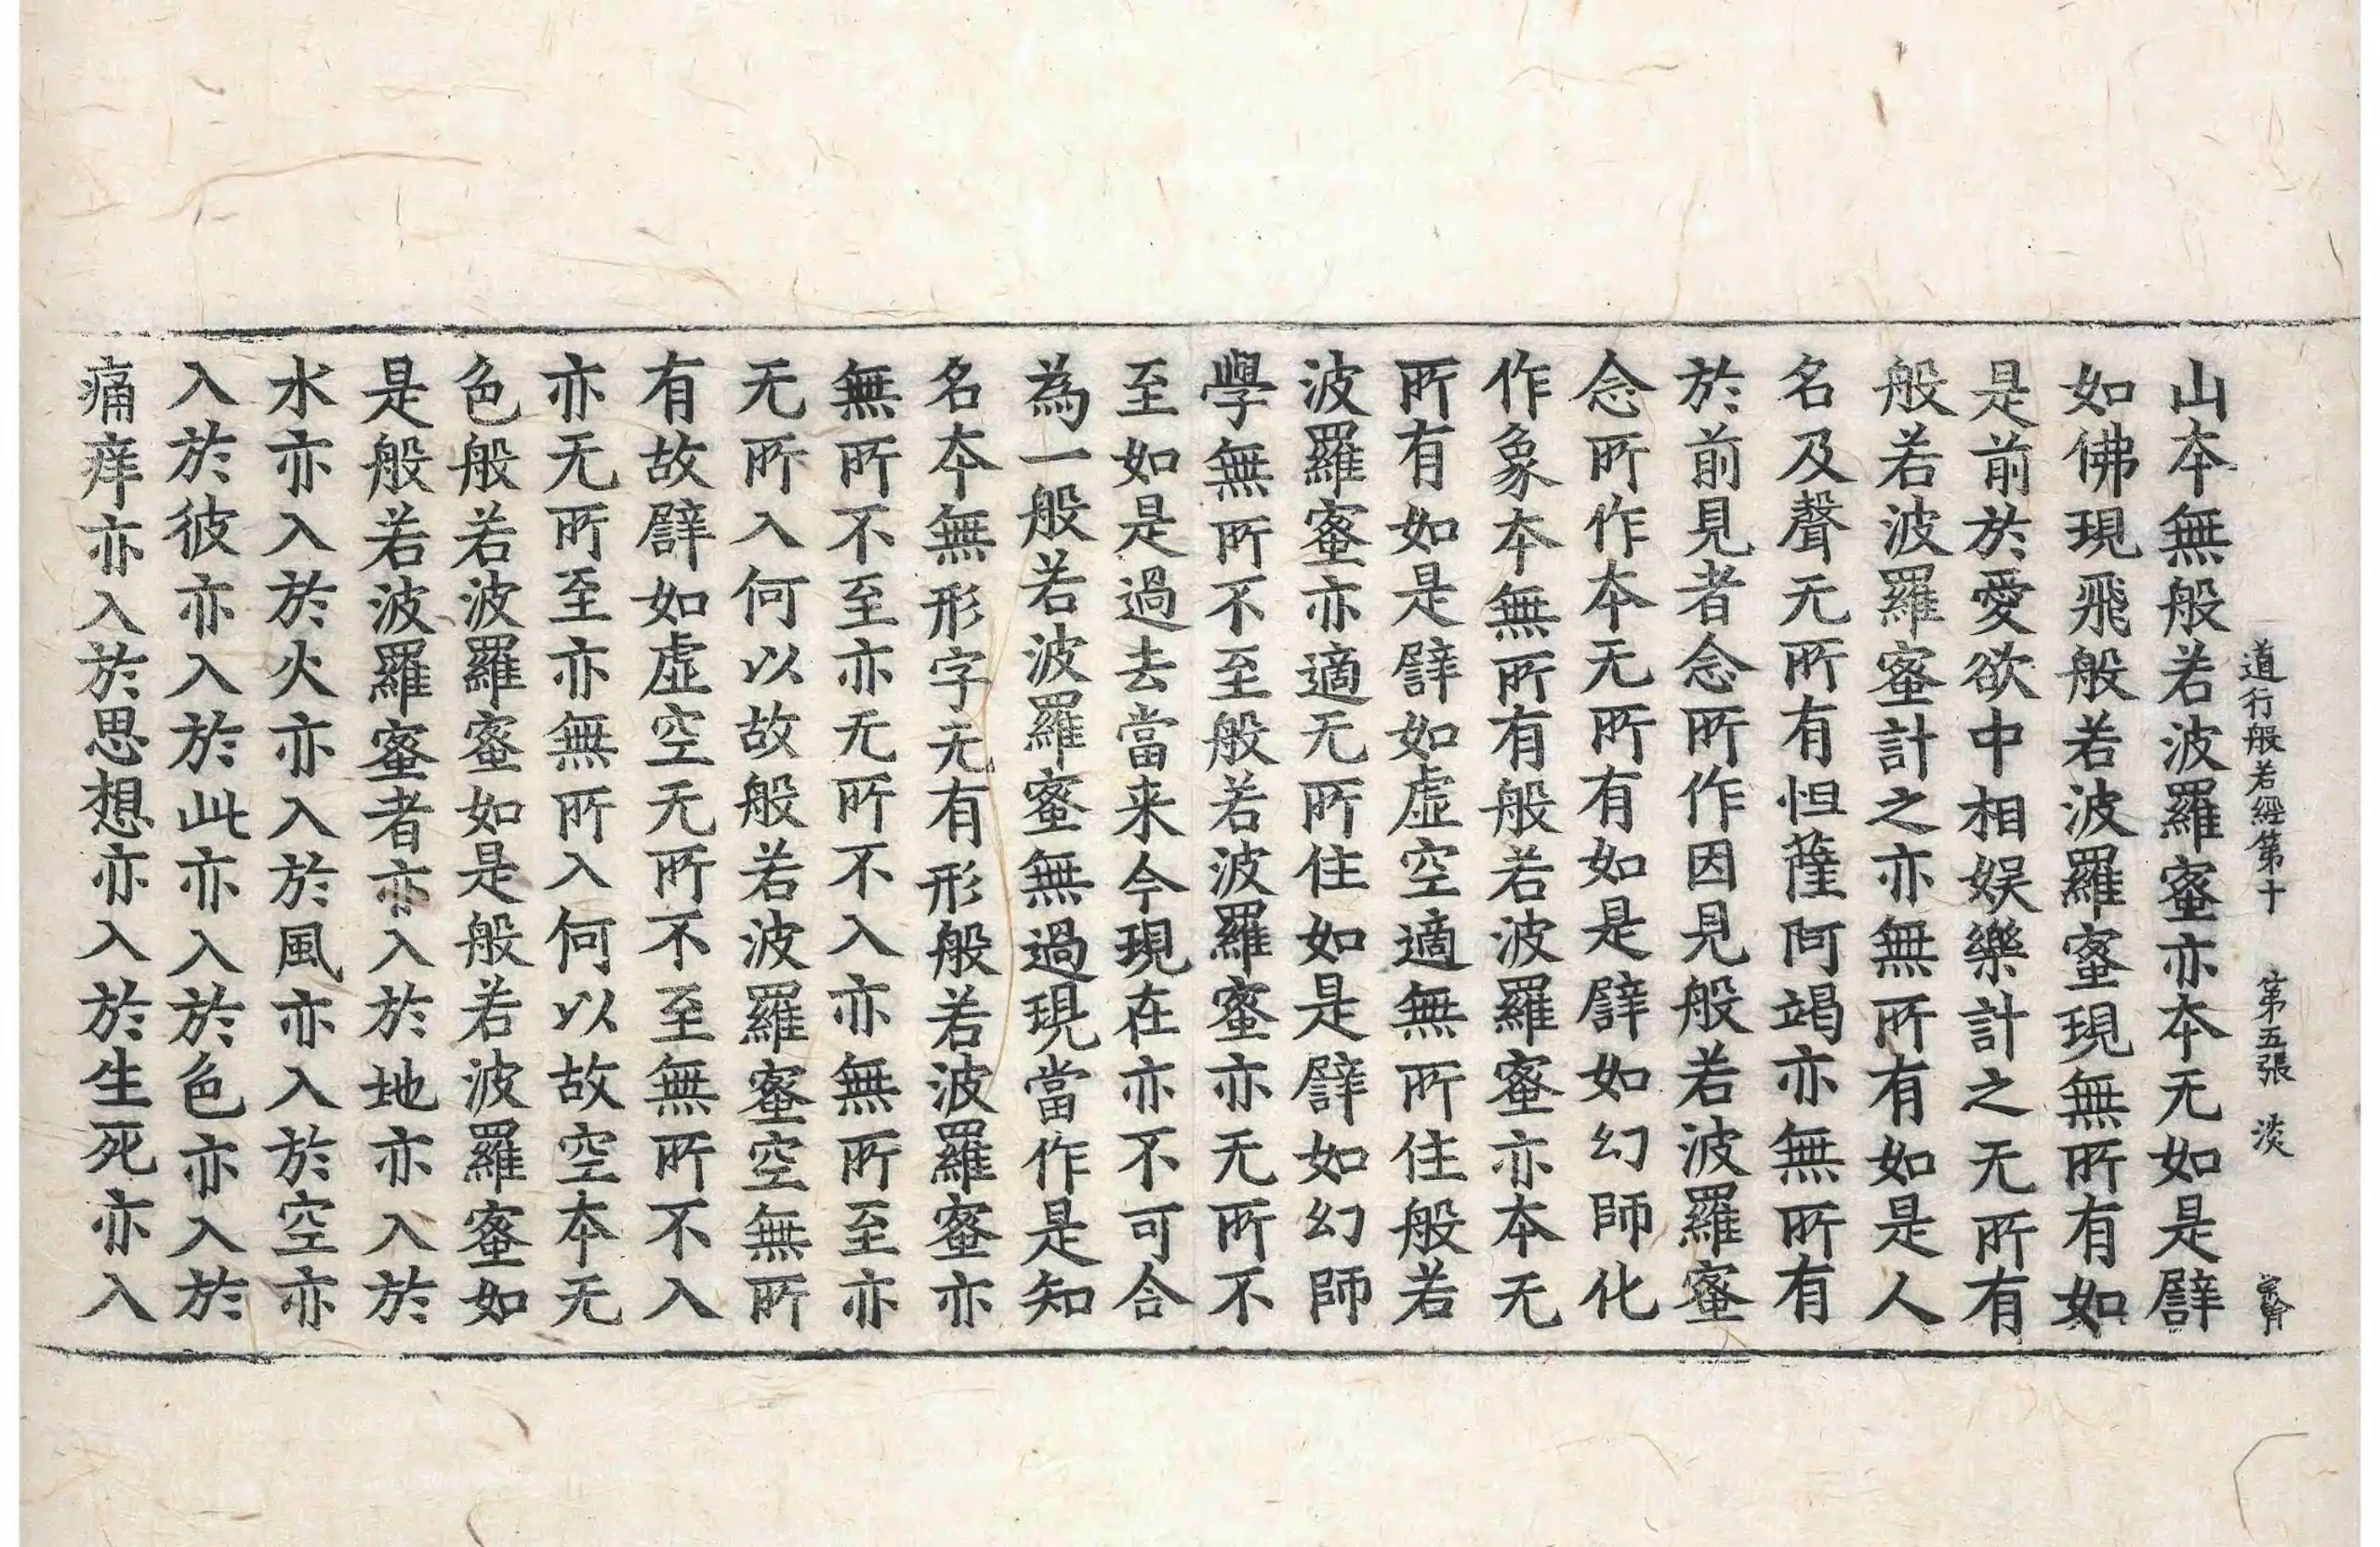 道行般若經第十 第五張 淡
山本無般若波羅蜜亦本无如是譬
如佛現飛般若波羅蜜現無所有如
是前於愛欲中相娱樂計之无所有
般若波羅蜜計之亦無所有如是人
名及聲无所有怛薩阿竭亦無所有
於前見者念所作因見般若波羅蜜
念所作本无所有如是譬如幻師化
作象本無所有般若波羅蜜亦本无
所有如是譬如虛空適無所住般若
波羅蜜亦適无所住如是譬如幻師
學無所不至般若波羅蜜亦无所不
至如是過去當来今現在亦不可合
為一般若波羅蜜無過現當作是知
名本無形字无有形般若波羅蜜亦
無所不至亦无所不入亦無所至亦
无所入何以故般若波羅蜜空無所
有故譬如虛空无所不至無所不入
亦无所至亦無所入何以故空本无
色般若波羅蜜如是般若波羅蜜如
是般若波羅蜜者亦入於地亦入於
水亦入於火亦入於風亦入於空亦
入於彼亦入於此亦入於色亦入於
痛痒亦入於思想亦入於生死亦入